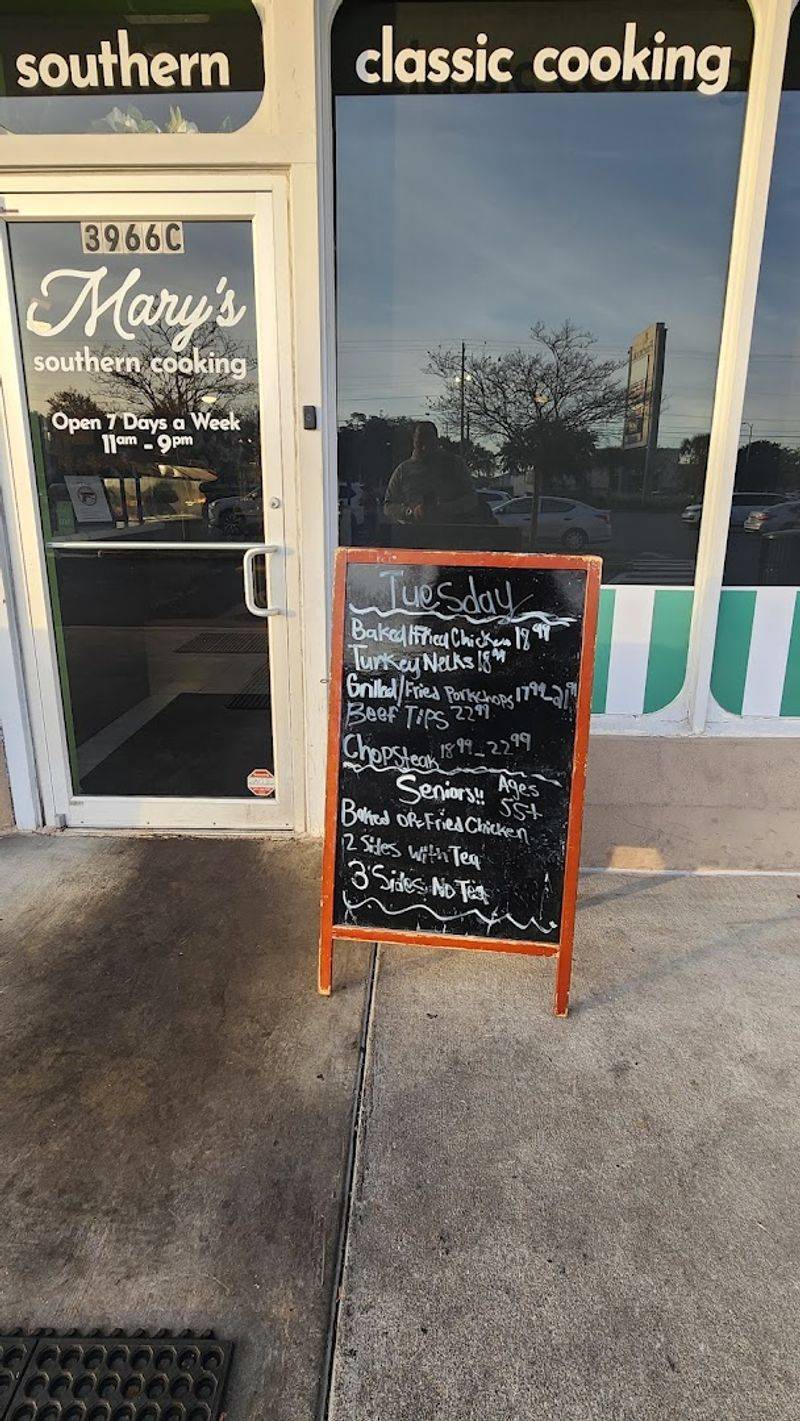 southern
classic cooking
3966C
Mary's
southern cooking
Open 7 Days a Week
11am - 9pm
Tuesday
Baked/Fried Chicken 18 99
Turkey Necks 18 99
Grilled/Fried Porkchops 17 99 - 21 99
Beef Tips 22 99
Chopsteak 18 99 - 22 99
Seniors!! Ages 55+
Baked OR Fried Chicken
2 Sides with Tea
3 Sides No Tea